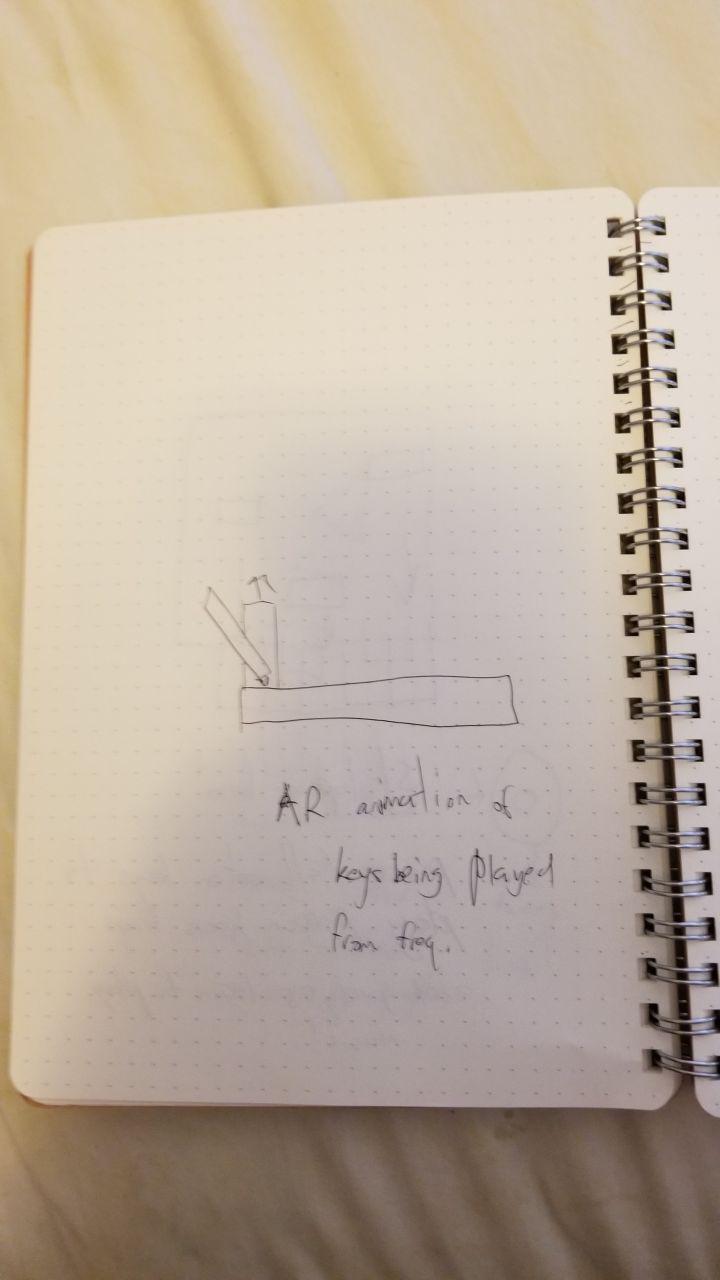 AR animation of
keys being played
from freq.